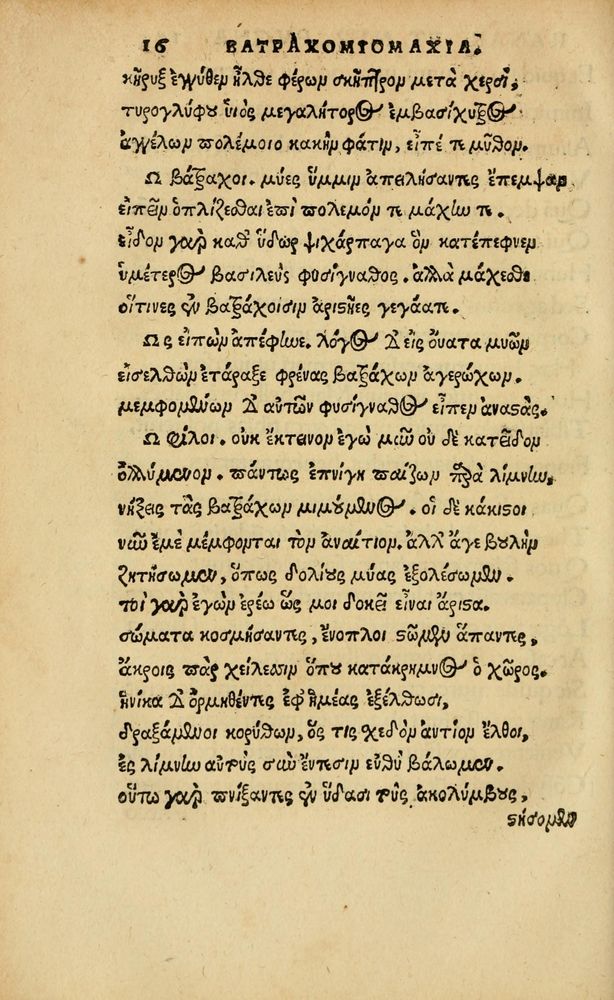 16 ΒΑΤΡΑΧΟΜΥΟΜΑΧΙΑ.
κῆρυξ ἐγγύθεν ἦλθε φέρων σκῆπτρον μετὰ χερσὶ,
τυρογλύφου ὑιὸς μεγαλήτορος ἐμβασίχυτρος
ἀγγέλων πολέμοιο κακὴν φάτιν, εἶπέ τι μῦθον.
Ω βάτραχοι. μύες ὔμμιν ἀπειλήσαντες ἔπεμψαν
εἰπεῖν ὁπλίζεσθαι ἐπὶ πολεμόν τι μάχην τι.
εἶδον γὰρ καθ' ὕδωρ ψιχάρπαγα ὃν κατέπεφνεν
ὑμέτερος βασιλεὺς φυσίγναθος. ἀλλὰ μάχεσθε
οἵτινες ἐν βατράχοισιν ἀριστῆες γεγάατε.
Ως εἰπὼν ἀπέφηνε. λόγος δ' εἰς ὄυατα μυῶν
εἰσελθὼν ἐτάραξε φρένας βατράχων ἀγερώχων.
μεμφομένων δ' αὐτῶν φυσίγναθος εἶπεν ἀναστάς.
Ω φίλοι. οὐκ ἔκτεινον ἐγὼ μῦν οὐ δὲ κατεῖδον
ὀλλύμενον. πάντως ἐπνίγη παίζων παρὰ λίμνην.
νήξεις τὰς βατράχων μιμούμενος. οἱ δὲ κάκιστοι
νῦν ἐμὲ μέμφονται τὸν ἀναίτιον. ἀλλ' ἄγε βουλὴν
ζητήσωμεν, ὅπως δολίους μύας ἐξολέσωμεν.
τοὶ γὰρ ἐγὼν ἐρέω ὥς μοι δοκεῖ εἶναι ἄριστα.
σώματα κοσμήσαντες, ἔνοπλοι στῶμεν ἅπαντες,
ἄκροις πὰρ χείλεσσιν ὅπου κατάκρημνος ὁ χῶρος.
ἡνίκα δ' ὁρμηθέντες ἐφ' ἡμέας ἐξέλθωσι,
δραξάμενοι κορύθων, ὅς τις χεδὸν ἀντίον ἔλθοι,
ἐς λίμνην αὐτοὺς σὺν ἔντεσιν εὐθὺ βάλωμεν.
οὕτω γὰρ πνίξαντες ἐν ὕδασι τοὺς ἀκολύμβους,
στήσομεν